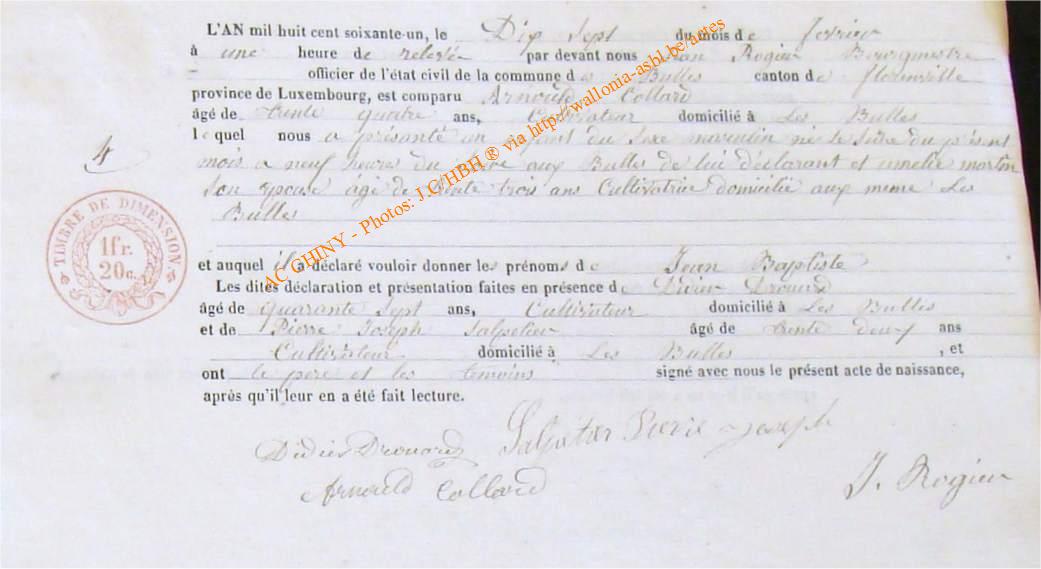 L'AN mil huit cent soixante-un, le Dix Sept du mois de fevrier
à une heure de relevée par devant nous Jean Rogier Bourgmestre
officier de l'état civil de la commune des Bulles canton de florenville
province de Luxembourg, est comparu Arnould Collard
âgé de trente quatre ans, Cultivateur domicilié à Les Bulles
lequel nous a présenté un enfant du sexe masculin né le Seize du présent
mois a neuf heures du aux Bulles de lui déclarant et martin
Son epouse âgé de trente trois ans Cultivatrice domicilié aux meme Les
Bulles
4
TIMBRE DE DIMENSION
1fr.
20c.
et auquel il a déclaré vouloir donner les prénoms de Jean Baptiste
Les dites déclaration et présentation faites en présence de Didier Drouard
âgé de quarante Sept ans, Cultivateur domicilié à Les Bulles
et de Pierre Joseph Salpetier âgé de trente deux ans
Cultivateur domicilié à Les Bulles , et
ont le pere et les temoins signé avec nous le présent acte de naissance,
après qu'il leur en a été fait lecture.
Didier Drouard Salpetier Pierre Joseph
Arnould Collard J. Rogier
AC CHINY - Photos: J.C HBH ® via http://wallonia-asbl.be/actes